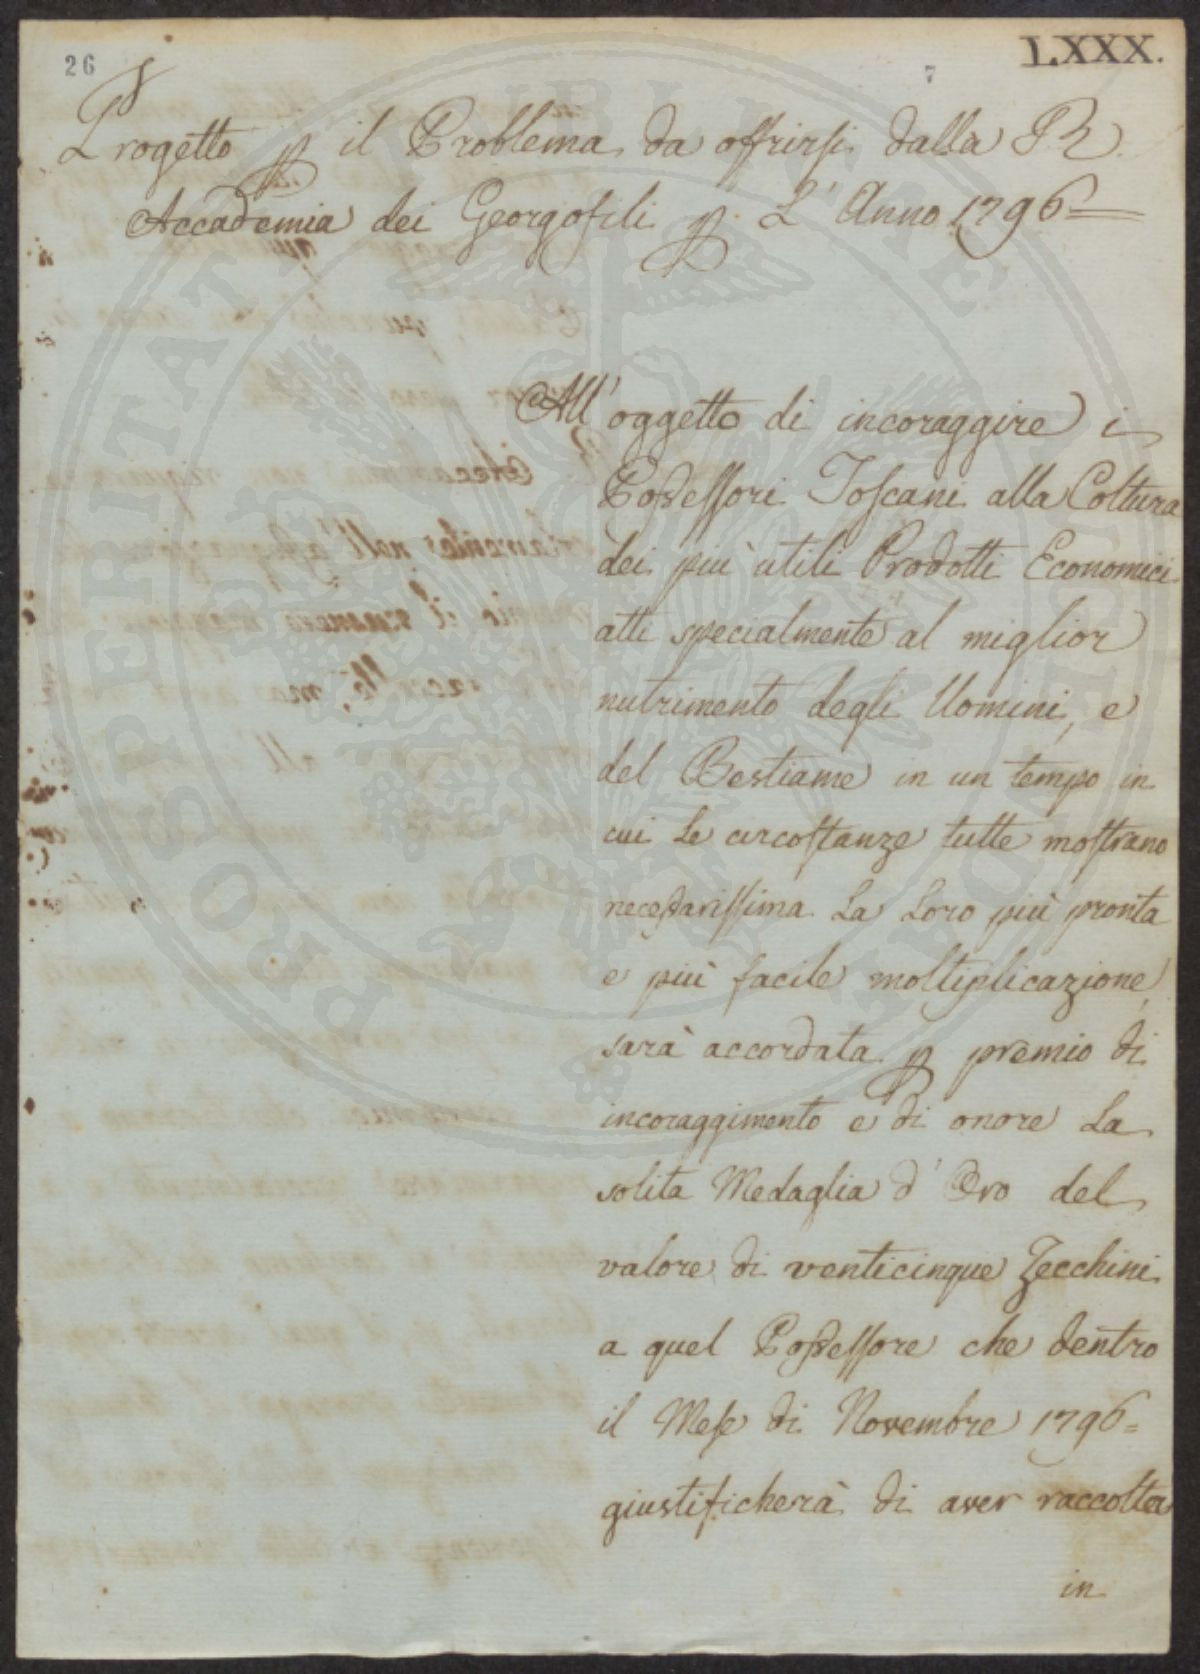 26
7
LXXX.
Progetto p il Problema da offrirsi dalla R.
Accademia dei Georgofili p. L'Anno 1796=
All'oggetto di incoraggire i
Possessori Toscani alla Coltura
dei più utili Prodotti Economici
atti specialmente al miglior
nutrimento degli Uomini, e
del Bestiame in un tempo in
cui Le circostanze tutte mostrano
necessarissima La Loro più pronta
e più facile moltiplicazione,
sarà accordata p premio di
incoraggimento e di onore La
solita Medaglia d'Oro del
valore di venticinque Zecchini
a quel Possessore che dentro
il Mese di Novembre 1796=
giustificherà di aver raccolta
in
PROSPERITATI PUBLICAE AUGENDAE